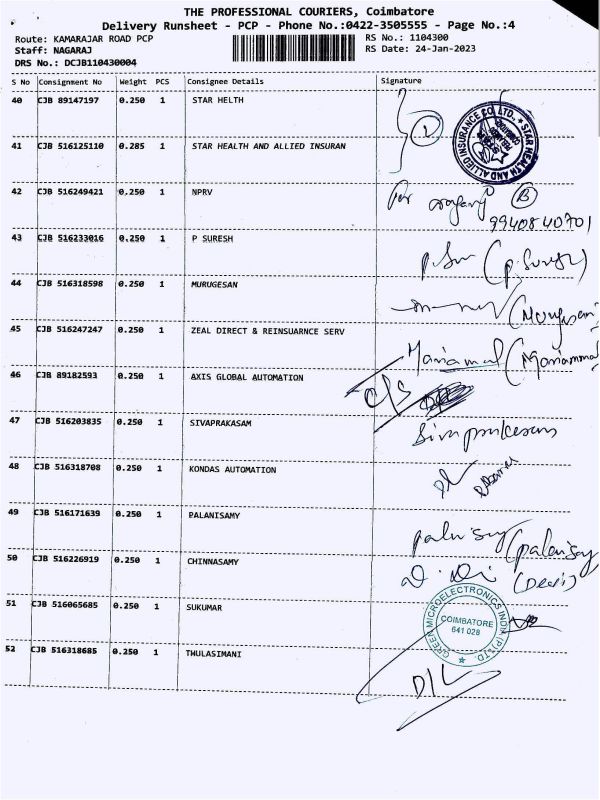 THE PROFESSIONAL COURIERS, Coimbatore
Delivery Runsheet - PCP - Phone No.:0422-3505555 - Page No.:4
Route: KAMARAJAR ROAD PCP RS No.: 1104300
Staff: NAGARAJ RS Date: 24-Jan-2023
DRS No.: DCJB110430004
S No Consignment No Weight PCS Consignee Details Signature
40 CJB 89147197 0.250 1 STAR HELTH
STAR HEALTH AND ALLIED INSURANCE CO. LTD.
41 CJB 516125110 0.285 1 STAR HEALTH AND ALLIED INSURAN
42 CJB 516249421 0.250 1 NPRV
9940840701
43 CJB 516233016 0.250 1 P SURESH P. Sur (P. Suresh)
44 CJB 516318598 0.250 1 MURUGESAN (Murugesan)
45 CJB 516247247 0.250 1 ZEAL DIRECT & REINSUARNCE SERV Mariammal (Mariammal
46 CJB 89182593 0.250 1 AXIS GLOBAL AUTOMATION C/S
47 CJB 516203835 0.250 1 SIVAPRAKASAM Sivaprakasam
48 CJB 516318708 0.250 1 KONDAS AUTOMATION
49 CJB 516171639 0.250 1 PALANISAMY palanisamy (palanisamy
50 CJB 516226919 0.250 1 CHINNASAMY D. Devi (Devi)
51 CJB 516065685 0.250 1 SUKUMAR
GREEN MICROELECTRONICS INDIA (P) LTD.
COIMBATORE
641 028
52 CJB 516318685 0.250 1 THULASIMANI D/L